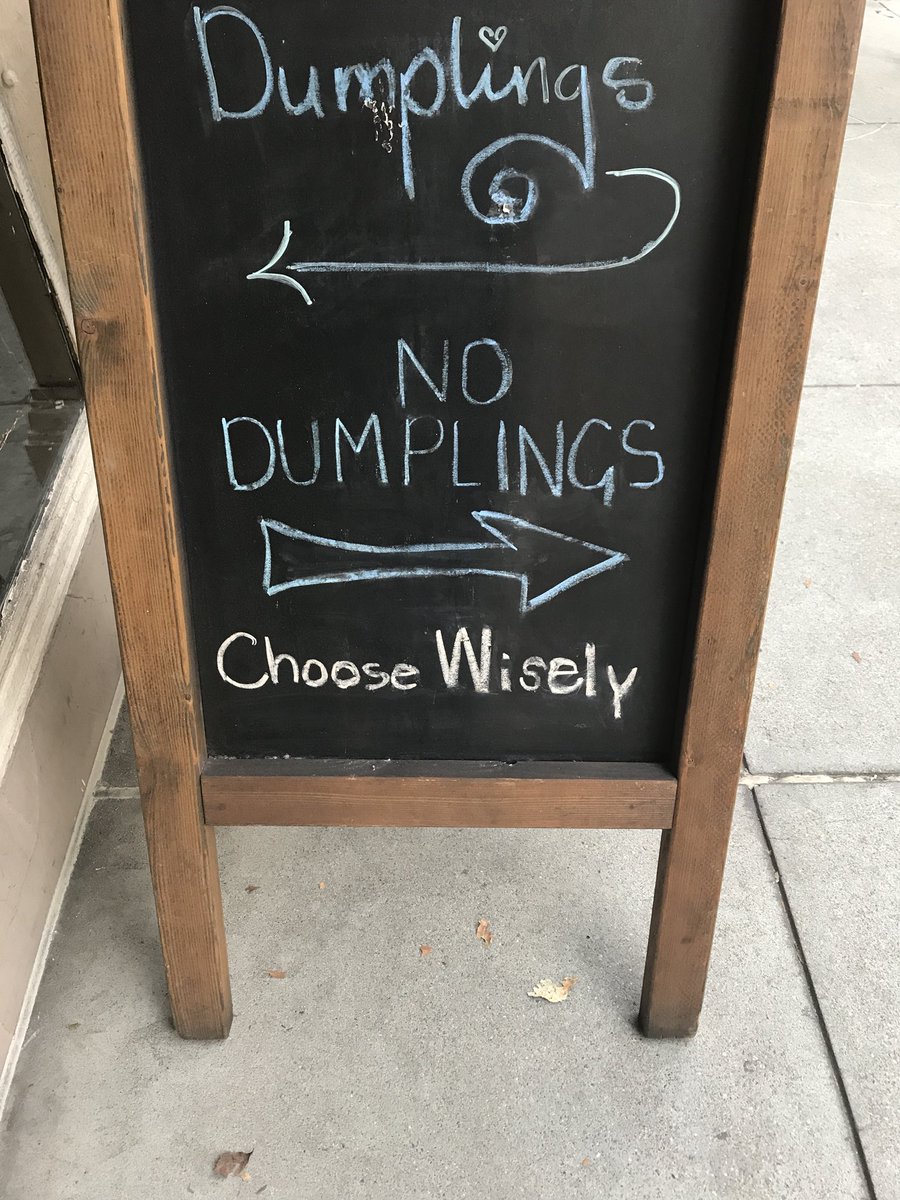 Dumplings
NO
DUMPLINGS
Choose Wisely